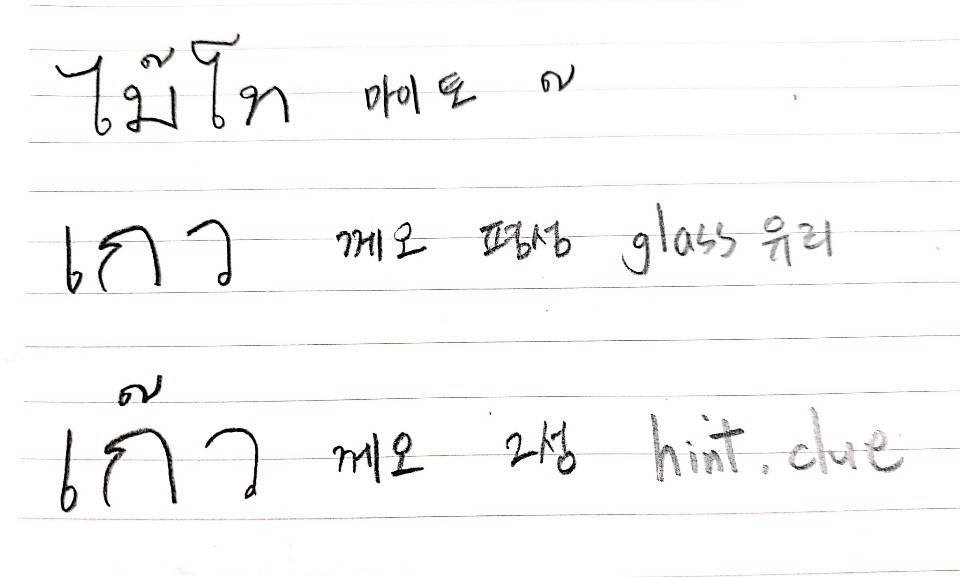 ไม้โท 마이토 ้
เกว 께오 평성 glass 유리
เก้ว 께오 2성 hint. clue